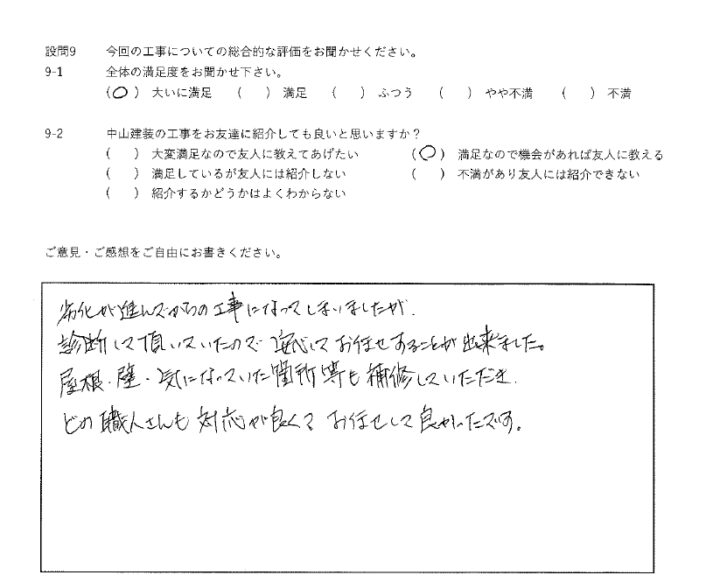 設問9 今回の工事についての総合的な評価をお聞かせください。
9-1 全体の満足度をお聞かせ下さい。
(○) 大いに満足 ( ) 満足 ( ) ふつう ( ) やや不満 ( ) 不満
9-2 中山建装の工事をお友達に紹介しても良いと思いますか？
( ) 大変満足なので友人に教えてあげたい (○) 満足なので機会があれば友人に教える
( ) 満足しているが友人には紹介しない ( ) 不満があり友人には紹介できない
( ) 紹介するかどうかはよくわからない
ご意見・ご感想をご自由にお書きください。
劣化が進んでからの工事になってしまいましたが、
診断して頂いていたので安心してお任せすることが出来ました。
屋根・壁・気になっていた箇所等も補修していただき、
どの職人さんも対応が良くてお任せして良かったです。